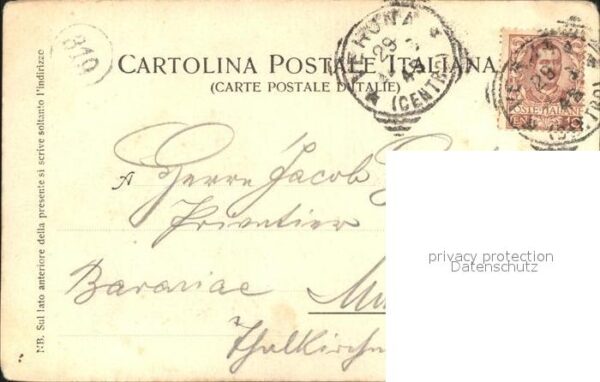 810
CARTOLINA POSTALE ITALIANA
(CARTE POSTALE D'ITALIE)
VERONA
29
(CENTRO)
POSTE ITALIANE
NB. Sul lato anteriore della presente si scrive soltanto l'indirizzo
A Herrn Jacob
Privatier
Bavariae
Thalkirchn
privacy protection
Datenschutz